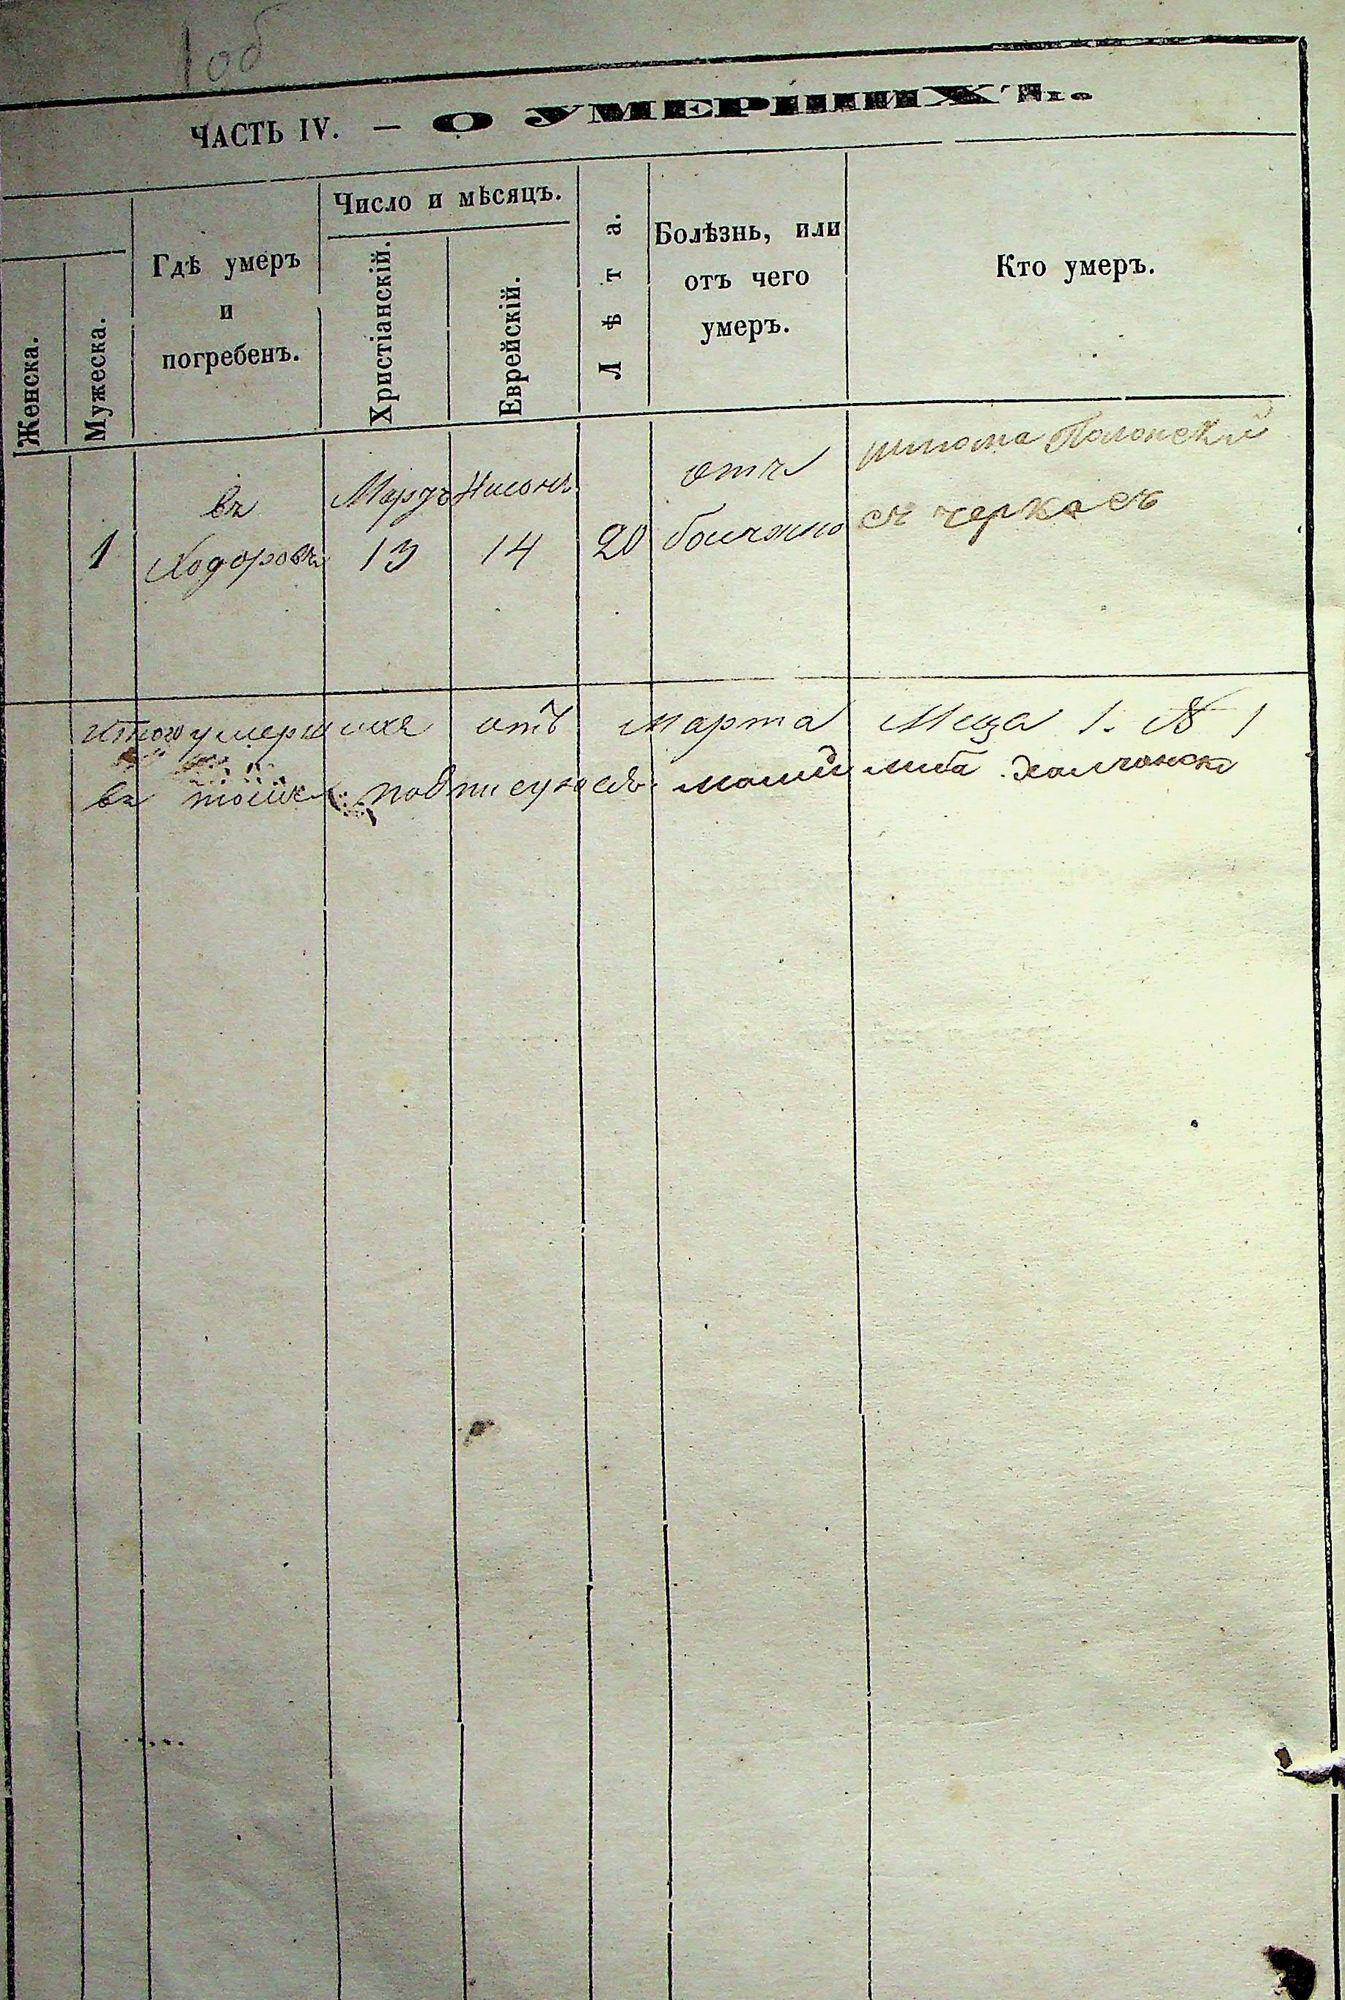 1 об
ЧАСТЬ IV. — О УМЕРШИХЪ.
Женска.
Мужеска.
Гдѣ умеръ
и
погребенъ.
Число и мѣсяцъ.
Христіанскій.
Еврейскій.
Лѣта.
Болѣзнь, или
отъ чего
умеръ.
Кто умеръ.
1
въ
Ходоровъ
Мардъ
13
Нисонъ
14
20
отъ
Шлома Полонский
съ черкасъ
итого умершихъ отъ марта Мца 1. № 1
въ подписуюсъ